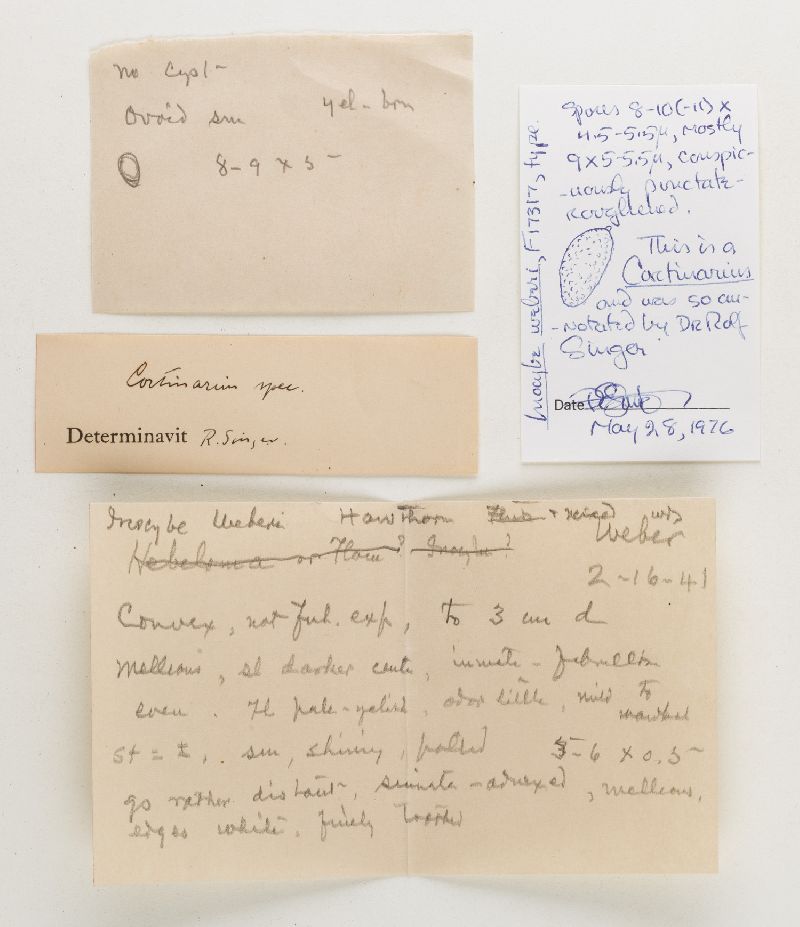 no cyst-
Ovoid sm yel-brn
8-9 x 5-
Spores 8-10(-11) x
4.5-5.5µ, mostly
9x5-5.5µ, conspic-
-uously punctate-
roughened.
This is a
Cortinarius
and was so an-
-notated by Dr. Rolf
Singer
Date
May 28, 1976
Inocybe weberi, F17317, type.
Cortinarius spec.
Determinavit R. Singer.
Inocybe Weberi Hawthorn + mixed wds
Weber
Hebeloma or Flam? Inocybe?
2-16-41
Convex, not ful. exp, to 3 cm d
melleous, sl darker center, innate-fibrillose
even. Fl pale-yelish, odor little, mild to
St = ±, sm, shiny, pallid 5-6 x 0.5-
gs rather distant, sinuate-adnexed, melleous,
edges white, finely toothed